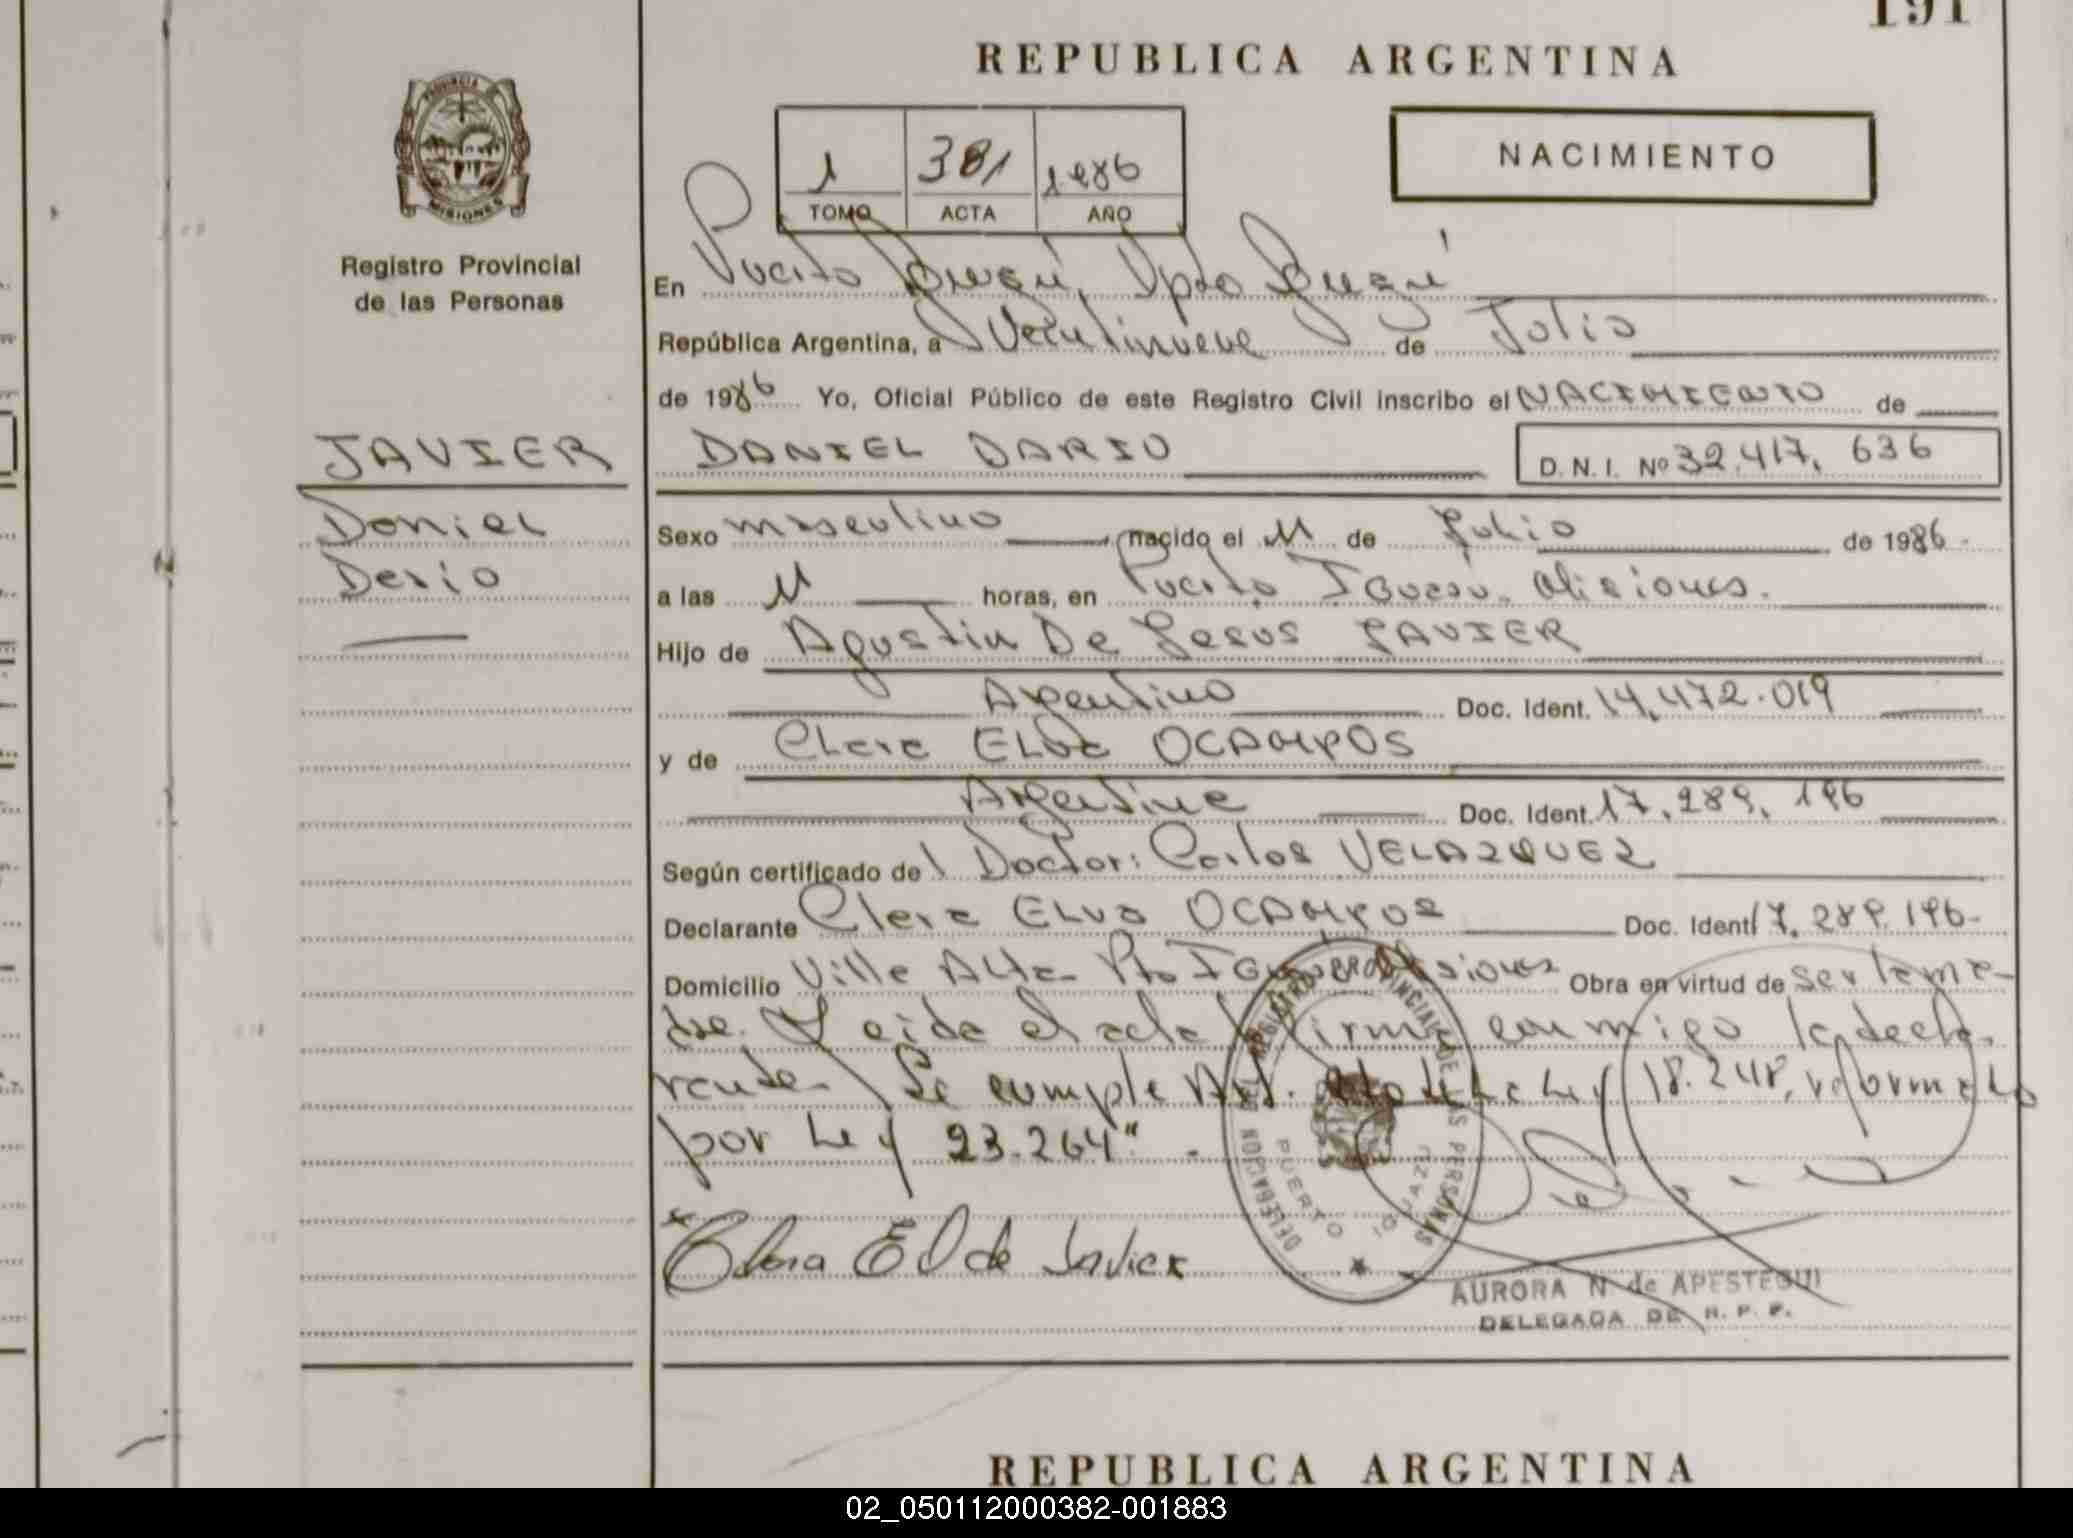 191
REPUBLICA ARGENTINA
PROVINCIA DE
MISIONES
Registro Provincial
de las Personas
NACIMIENTO
1 381 1986
TOMO ACTA AÑO
En Puerto Iguazú, Dpto Iguazú
República Argentina, a Veintinueve de Julio
de 1986 Yo, Oficial Público de este Registro Civil inscribo el NACIMIENTO de
JAVIER
DANIEL DARIO D. N. I. Nº 32.417.636
Daniel
Dario
Sexo masculino, nacido el 11 de Julio de 1986
a las 11 horas, en Puerto Iguazú. Misiones.
Hijo de Agustin De Jesus JAVIER
Argentino Doc. Ident. 14.472.019
y de Clara ELva OCAMPOS
Argentina Doc. Ident. 17.289.196
Según certificado de l Doctor: Carlos VELAZQUEZ
Declarante Clara ELva OCAMPOS Doc. Ident 17.289.196-
Domicilio Villa Alta- Pto Iguazú Misiones Obra en virtud de ser la ma-
dre. Leida el acta firma conmigo la decla-
rante- "Se cumple Art. de la Ley 18.248, reformado
por Ley 23.264".
Clara E O de Javier
DELEGACION DEL REGISTRO PROVINCIAL DE LAS PERSONAS
PUERTO IGUAZU
AURORA N. de APESTEGUI
DELEGADA DE R. P. P.
REPUBLICA ARGENTINA
02_050112000382-001883